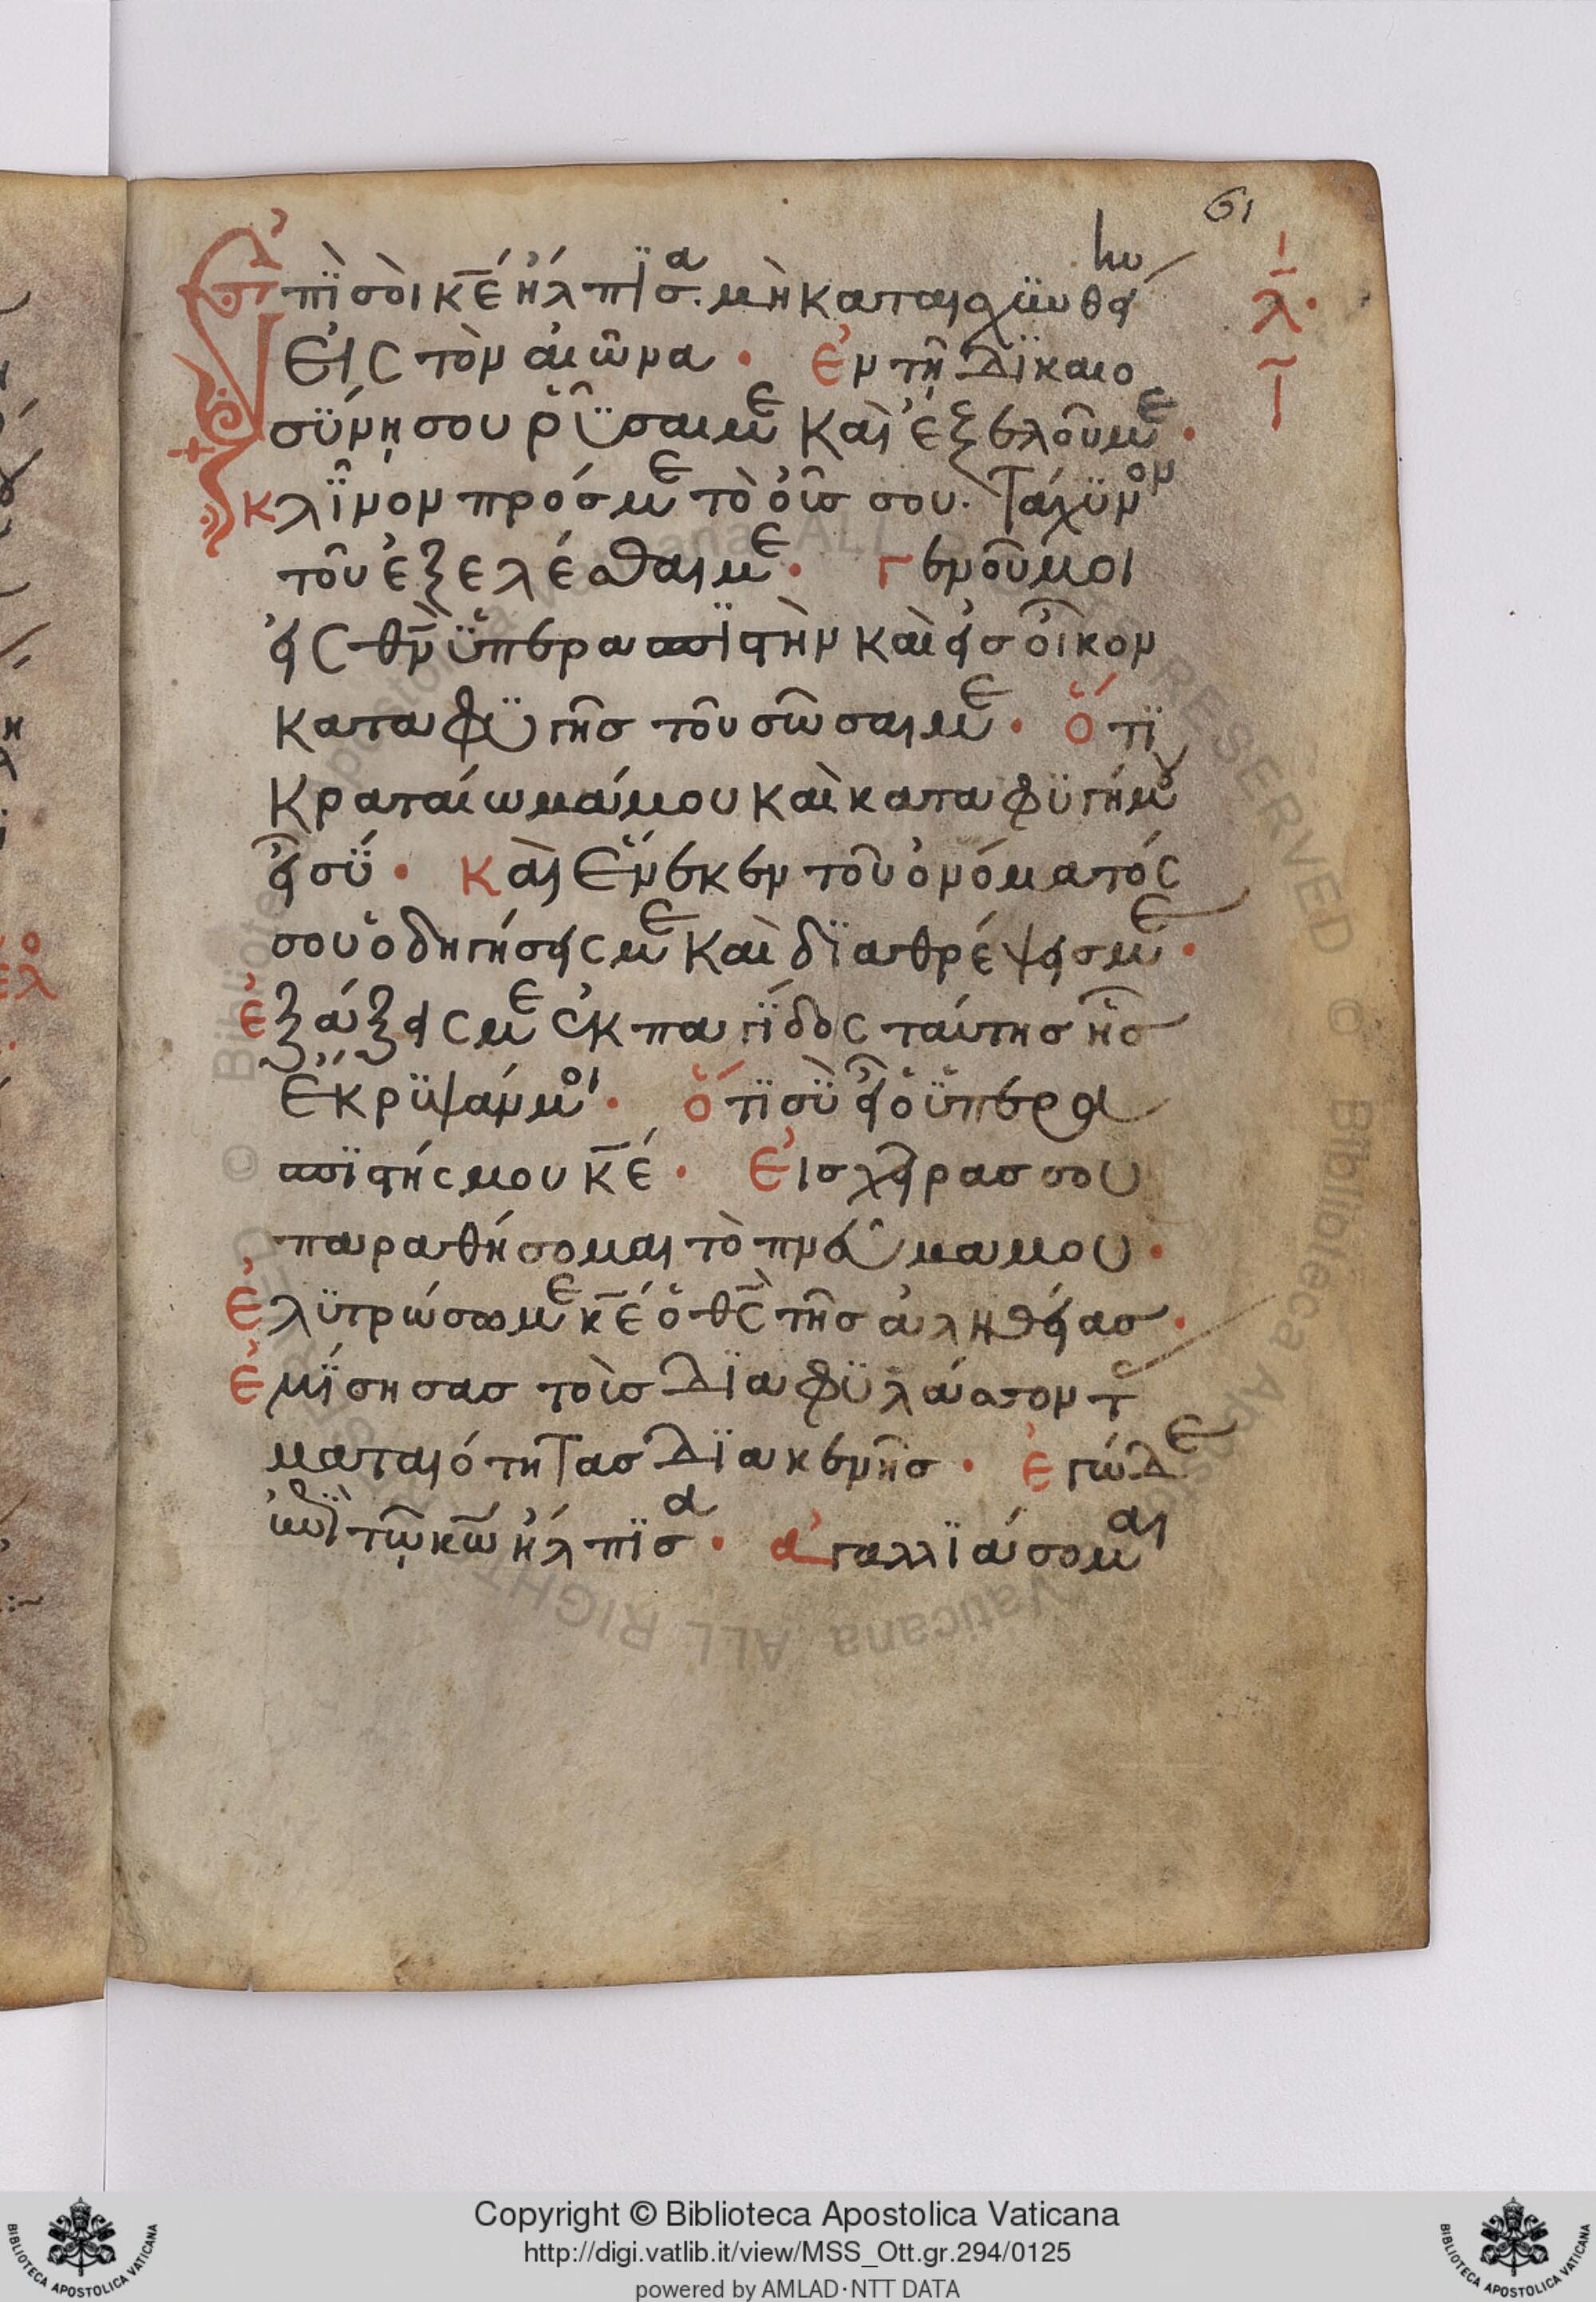 61
Ἐπὶ σοὶ κ̅ε̅ ἤλπισα. μὴ καταισχυνθείην
λ̅·
εἰς τὸν αἰῶνα · Ἐν τῇ δικαιο
σύνῃ σου ῥῦσαι με καὶ ἐξελοῦ με ·
Κλῖνον πρός με τὸ οὖς σου. Τάχυνον
τοῦ ἐξελέσθαι με · Γενοῦ μοι
εἰς θ̅ν̅ ὑπερασπιστὴν καὶ εἰς οἶκον
καταφυγῆς τοῦ σῶσαι με · ὅτι
κραταίωμά μου καὶ καταφυγή μου
εἶ σύ · Καὶ ἕνεκεν τοῦ ὀνόματός
σου ὁδηγήσεις με καὶ διαθρέψεις με ·
Ἐξάξεις με ἐκ παγίδος ταύτης ἧς
ἔκρυψάν μοι · ὅτι σὺ εἶ ὁ ὑπερα
σπιστής μου κ̅ε̅ · Εἰς χεῖρας σου
παραθήσομαι τὸ πνεῦμα μου ·
Ἐλυτρώσω με κ̅ε̅ ὁ θ̅ς̅ τῆς ἀληθείας ·
Ἐμίσησας τοὺς διαφυλάσσοντας
ματαιότητας διακενῆς · ἐγὼ δὲ
ἐπὶ τῷ κ̅ω̅ ἤλπισα · ἀγαλλιάσομαι
Copyright © Biblioteca Apostolica Vaticana
http://digi.vatlib.it/view/MSS_Ott.gr.294/0125
powered by AMLAD·NTT DATA
BIBLIOTECA APOSTOLICA VATICANA
BIBLIOTECA APOSTOLICA VATICANA